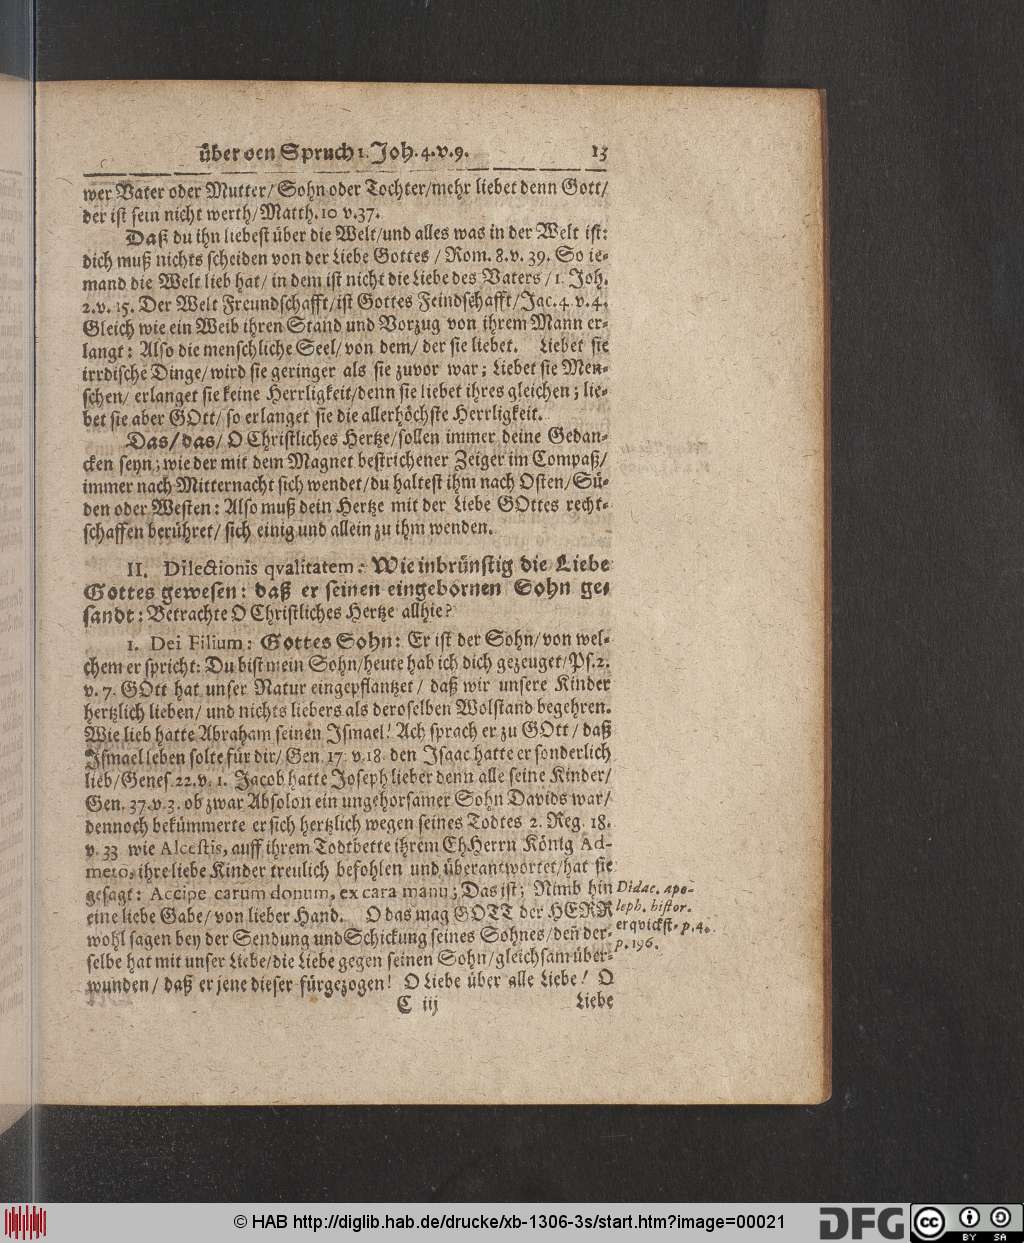 über den Spruch 1. Joh. 4. v. 9. 13
wer Vater oder Mutter/ Sohn oder Tochter/mehr liebet denn Gott/
der ist sein nicht werth/ Matth. 10 v. 37.
Daß du ihn liebest über die Welt/und alles was in der Welt ist:
dich muß nichts scheiden von der Liebe Gottes / Rom. 8. v. 39. So ie-
mand die Welt lieb hat/ in dem ist nicht die Liebe des Vaters / 1. Joh.
2. v. 15. Der Welt Freundschafft/ist Gottes Feindschafft/Jac. 4. v. 4.
Gleich wie ein Weib ihren Stand und Vorzug von ihrem Mann er-
langt: Also die menschliche Seel/ von dem/ der sie liebet. Liebet sie
irrdische Dinge/ wird sie geringer als sie zuvor war; Liebet sie Men-
schen/ erlanget sie keine Herrligkeit/denn sie liebet ihres gleichen; lie-
bet sie aber GOtt/ so erlanget sie die allerhöchste Herrligkeit.
Das/ das/ O Christliches Hertze/sollen immer deine Gedan-
cken seyn; wie der mit dem Magnet bestrichener Zeiger im Compaß/
immer nach Mitternacht sich wendet/du haltest ihm nach Osten/ Sü-
den oder Westen: Also muß dein Hertze mit der Liebe GOttes recht-
schaffen berühret/ sich einig und allein zu ihm wenden.
II. Dilectionis qvalitatem: Wie inbrünstig die Liebe
Gottes gewesen: daß er seinen eingebornen Sohn ge-
sandt: Betrachte O Christliches Hertze allhie?
1. Dei Filium: Gottes Sohn: Er ist der Sohn/von wel-
chem er spricht: Du bist mein Sohn/heute hab ich dich gezeuget/Ps. 2.
v. 7. GOtt hat unser Natur eingepflantzet / daß wir unsere Kinder
hertzlich lieben/ und nichts liebers als deroselben Wolstand begehren.
Wie lieb hatte Abraham seinen Ismael! Ach sprach er zu GOtt/ daß
Ismael leben solte für dir/ Gen. 17. v. 18. den Isaac hatte er sonderlich
lieb/Genes. 22. v. 1. Jacob hatte Joseph lieber denn alle seine Kinder/
Gen. 37. v. 3. ob zwar Absolon ein ungehorsamer Sohn Davids war/
dennoch bekümmerte er sich hertzlich wegen seines Todtes 2. Reg. 18.
v. 33 wie Alcestis, auff ihrem Todtbette ihrem EhHerrn König Ad-
meto, ihre liebe Kinder treulich befohlen und überantwortet/hat sie
gesagt: Accipe carum donum, ex cara manu; Das ist; Nimb hin
eine liebe Gabe/ von lieber Hand. O das mag GOTT der HERR
wohl sagen bey der Sendung und Schickung seines Sohnes/den̄ der-
selbe hat mit unser Liebe/die Liebe gegen seinen Sohn/gleichsam über-
wunden/ daß er jene dieser fürgezogen! O Liebe über alle Liebe! O
Didac. apo-
leph. histor.
erqvickst. p. 4.
p. 196.
C iij Liebe
© HAB http://diglib.hab.de/drucke/xb-1306-3s/start.htm?image=00021
DFG
cc BY SA